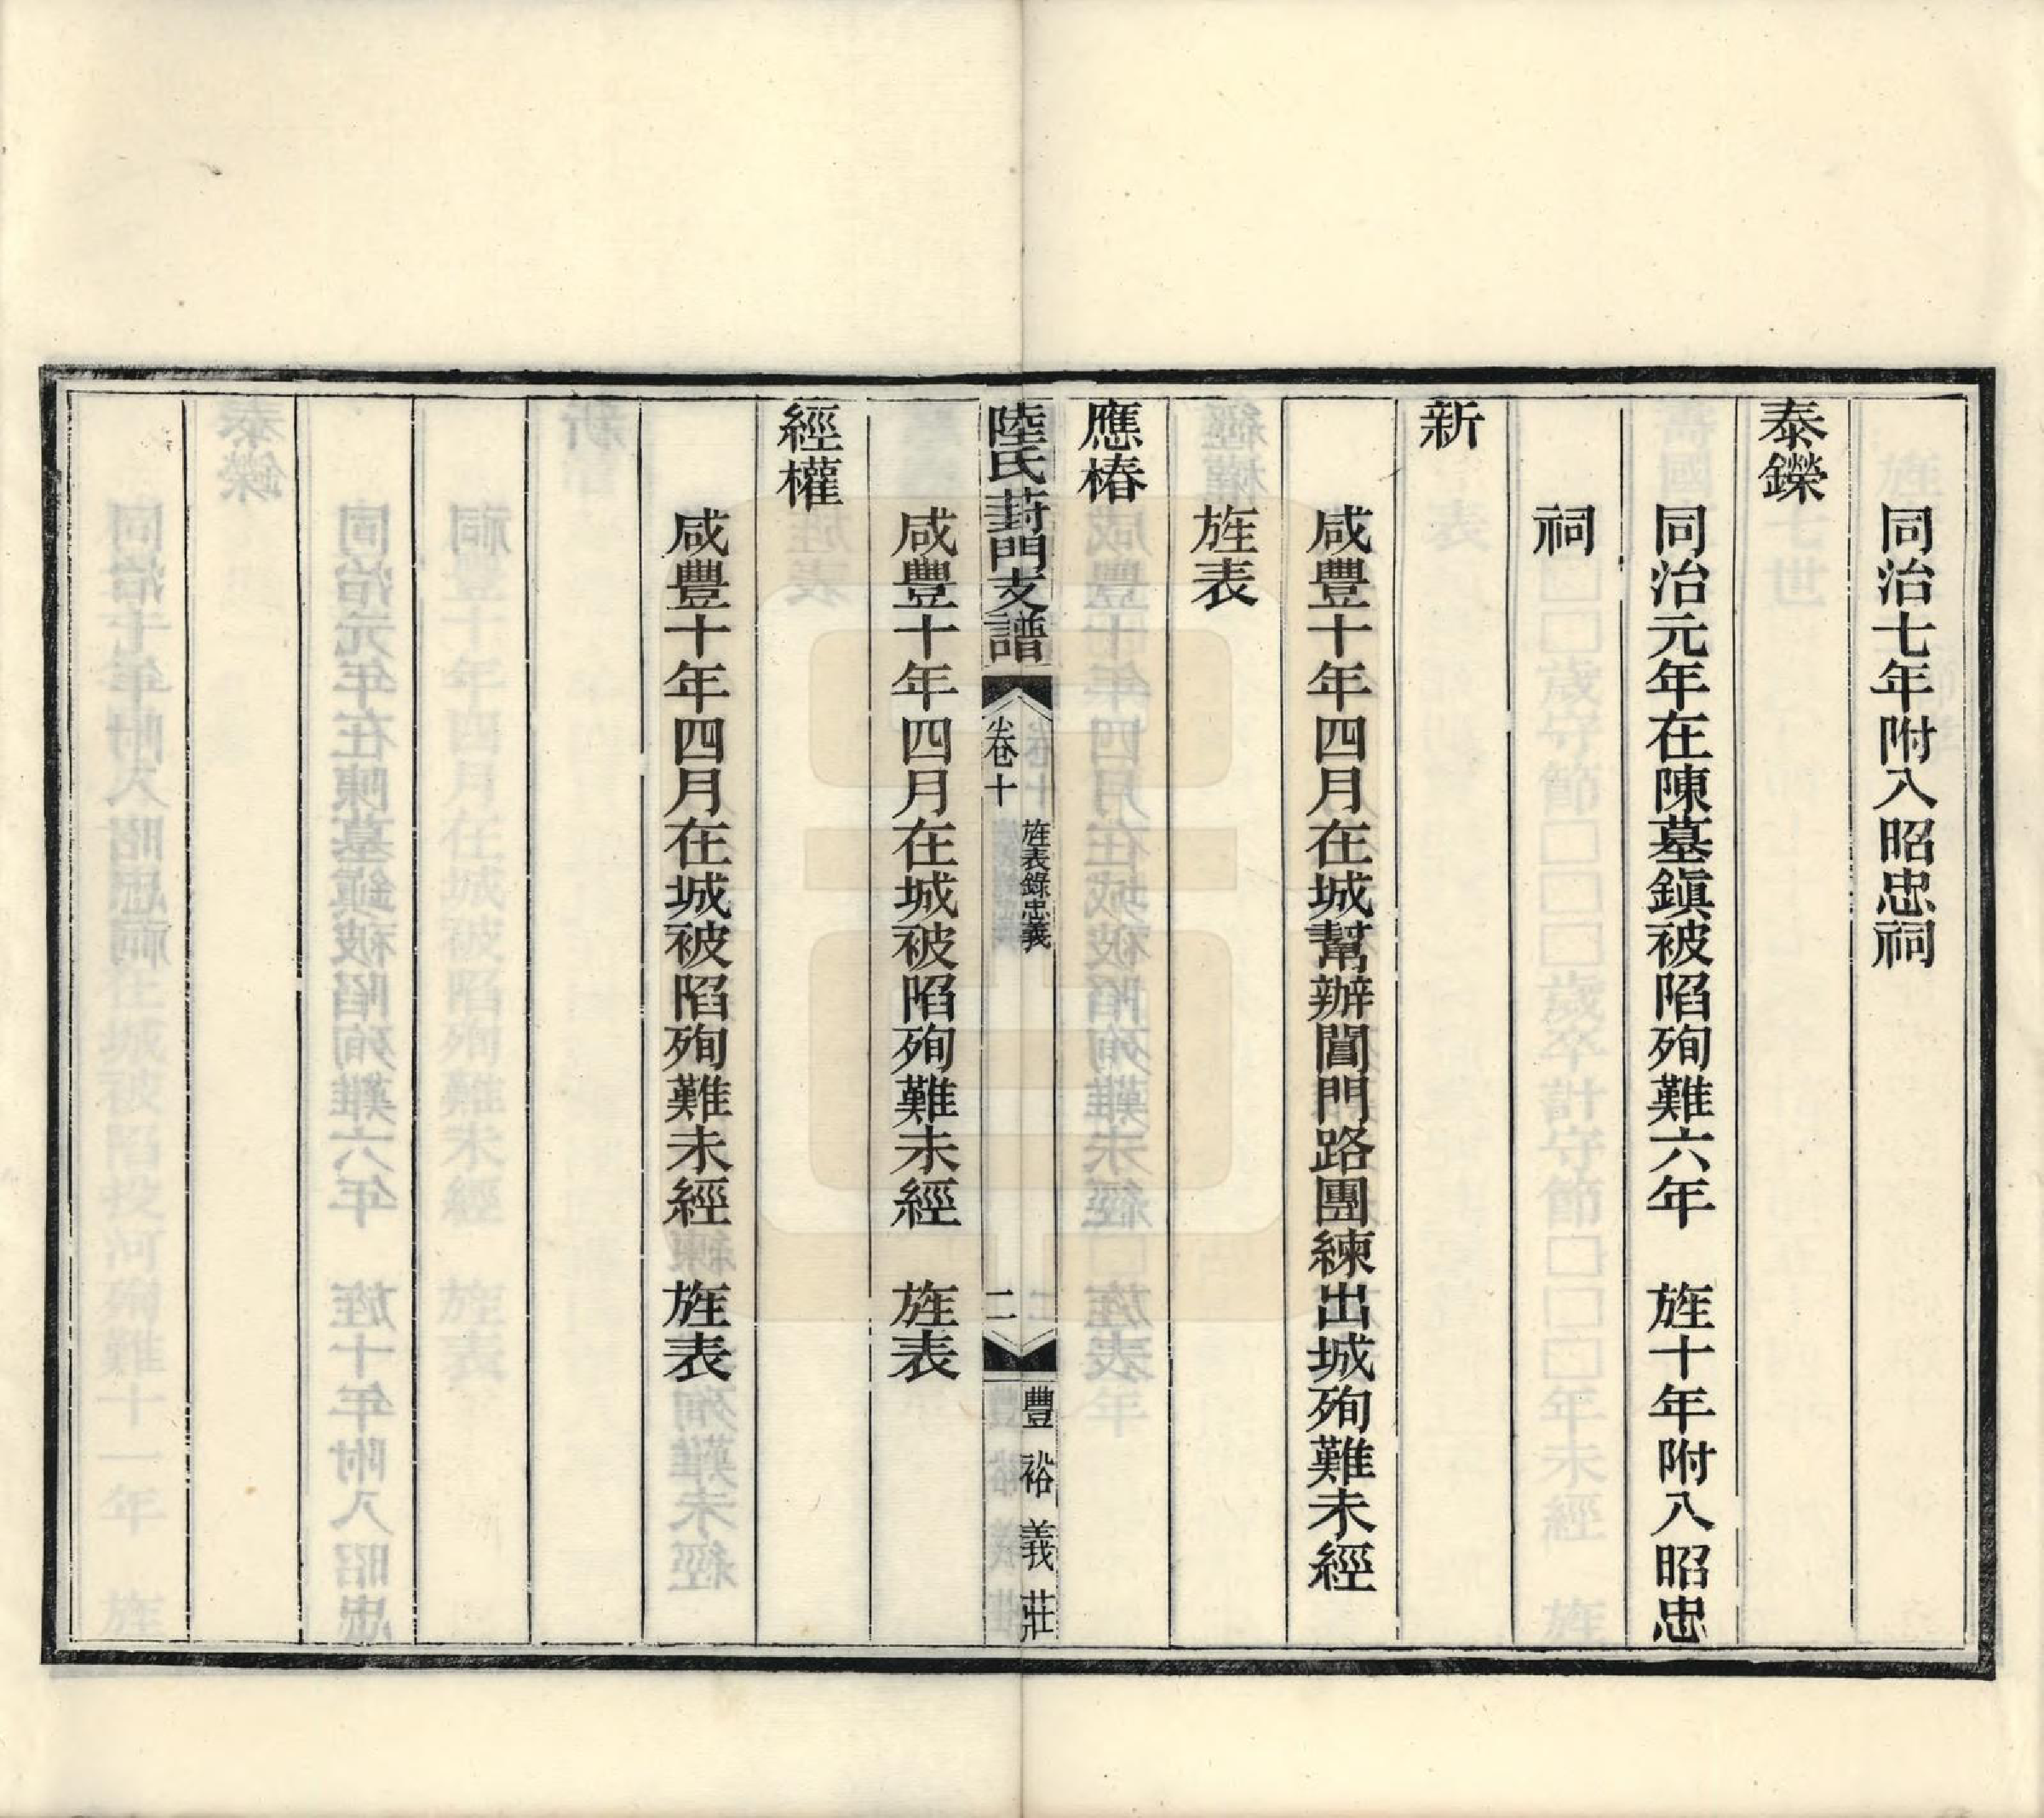 同治七年附入昭忠祠
泰鑠
同治元年在陳墓鎭被陷殉難六年　旌十年附入昭忠
祠
新
咸豐十年四月在城幫辦閶門路團練出城殉難未經
旌表
應椿
陸氏葑門支譜　卷十　旌表錄忠義　二　豐裕義莊
咸豐十年四月在城被陷殉難未經　旌表
經權
咸豐十年四月在城被陷殉難未經　旌表